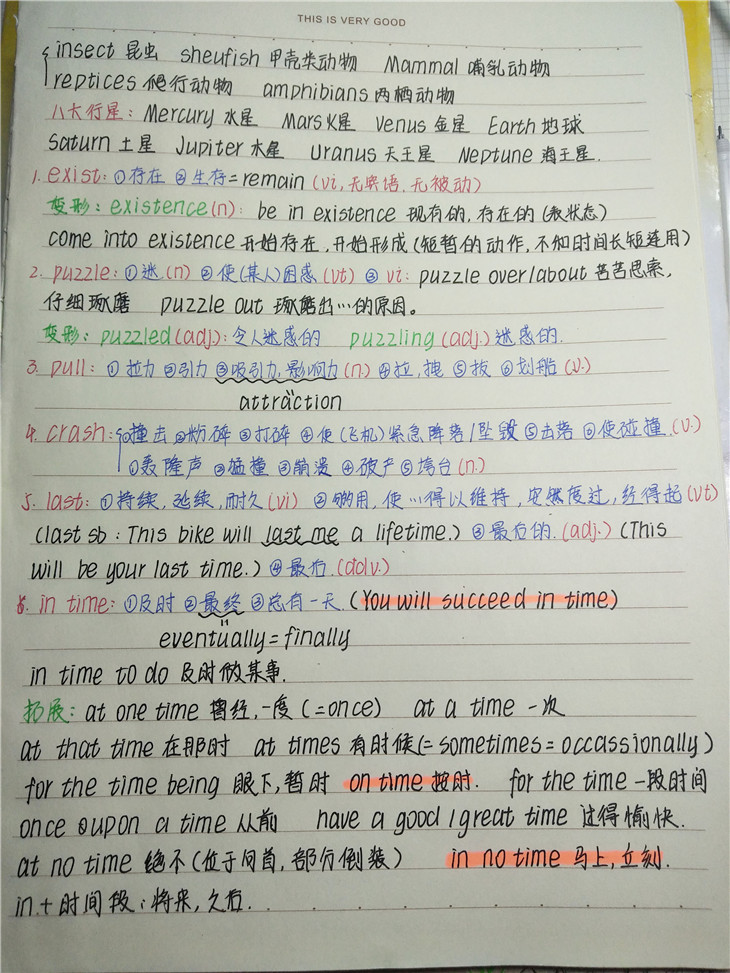 THIS IS VERY GOOD
insect 昆虫 sheufish 甲壳类动物 Mammal 哺乳动物
reptices 爬行动物 amphibians 两栖动物
八大行星: Mercury 水星 Mars火星 Venus 金星 Earth 地球
Saturn 土星 Jupiter 木星 Uranus 天王星 Neptune 海王星.
1. exist: ①存在 ②生存=remain (vi, 无宾语, 无被动)
变形: existence(n): be in existence 现有的, 存在的 (表状态)
come into existence 开始存在, 开始形成 (短暂的动作, 不和时间长短连用)
2. puzzle: ①迷(n) ②使(某人)困惑(vt) ③ vi: puzzle over/about 苦苦思索,
仔细琢磨 puzzle out 琢磨出…的原因。
变形: puzzled(adj): 令人迷惑的 puzzling (adj.) 迷惑的.
3. pull: ①拉力 ②引力 ③吸引力, 影响力(n.) ④拉, 拽 ⑤拔 ⑥划船 (v.)
attraction
4. crash: ①撞击 ②炸碎 ③打碎 ④使(飞机)紧急降落/坠毁 ⑤击落 ⑥使碰撞.(v.)
①轰隆声 ②猛撞 ③崩溃 ④破产 ⑤垮台(n.)
5. last: ①持续, 延续, 耐久(vi) ②够用, 使…得以维持, 安然度过, 经得起(vt)
(last sb : This bike will last me a lifetime.) ③最后的. (adj.) (This
will be your last time.) ④最后.(adv.)
6. in time: ①及时 ②最终 ③总有一天. (You will succeed in time)
eventually = finally
in time to do 及时做某事.
拓展: at one time 曾经, 一度 (=once) at a time 一次
at that time 在那时 at times 有时候(= sometimes = occassionally)
for the time being 眼下, 暂时 on time 按时. for the time 一段时间
once upon a time 从前 have a good / great time 过得愉快.
at no time 绝不 (位于句首, 部分倒装) in no time 马上, 立刻.
in + 时间段: 将来, 之后.